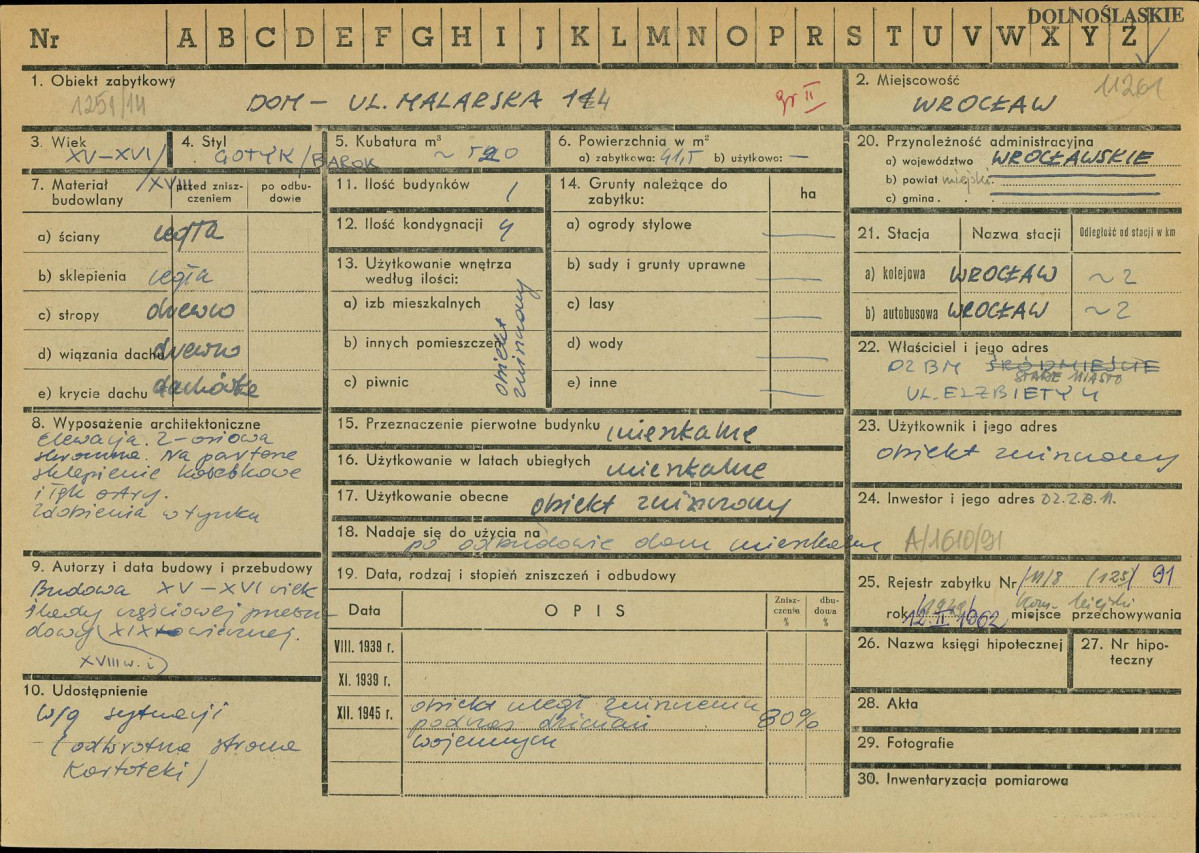 DOLNOŚLĄSKIE
Nr A B C D E F G H I J K L M N O P R S T U V W X Y Z
1. Obiekt zabytkowy
1251/14
DOM – UL. MALARSKA 14
gr II
2. Miejscowość
11261
WROCŁAW
3. Wiek
XV–XVI/XVIII
4. Styl
GOTYK/BAROK
5. Kubatura m³
~ 520
6. Powierzchnia w m²
a) zabytkowa: 41,5 b) użytkowo: —
7. Materiał budowlany
przed zniszczeniem
po odbudowie
a) ściany cegła
b) sklepienia cegła
c) stropy drewno
d) wiązania dachu drewno
e) krycie dachu dachówka
8. Wyposażenie architektoniczne
elewacja 2-osiowa
skromna. Na parterze
sklepienie kolebkowe
i łęk ostry.
Zdobienia w tynku
9. Autorzy i data budowy i przebudowy
Budowa XV – XVI wiek
ślady częściowej przebu
dowy XIX-wiecznej.
XVIII w. i
10. Udostępnienie
w/g sytuacji
(odwrotna strona
kartoteki)
11. Ilość budynków 1
12. Ilość kondygnacji 4
13. Użytkowanie wnętrza
według ilości:
a) izb mieszkalnych
b) innych pomieszczeń
c) piwnic
obiekt
zniszczony
14. Grunty należące do
zabytku:
ha
a) ogrody stylowe —
b) sady i grunty uprawne —
c) lasy —
d) wody —
e) inne —
15. Przeznaczenie pierwotne budynku mieszkalne
16. Użytkowanie w latach ubiegłych mieszkalne
17. Użytkowanie obecne obiekt zniszczony
18. Nadaje się do użycia na
po odbudowie dom mieszkalny
19. Data, rodzaj i stopień zniszczeń i odbudowy
Data
OPIS
Zniszczenie %
dbudowa %
VIII. 1939 r.
XI. 1939 r.
XII. 1945 r.
obiekt uległ zniszczeniu
podczas działań
wojennych
80%
20. Przynależność administracyjna
a) województwo WROCŁAWSKIE
b) powiat miejski
c) gmina
21. Stacja
Nazwa stacji
Odległość od stacji w km
a) kolejowa WROCŁAW ~ 2
b) autobusowa WROCŁAW ~ 2
22. Właściciel i jego adres
DZBM ŚRÓDMIEŚCIE
STARE MIASTO
UL. ELŻBIETY 4
23. Użytkownik i jego adres
obiekt zniszczony
24. Inwestor i jego adres D.Z.B.M.
A/1610/91
25. Rejestr zabytku Nr /11/8 (125) 91
rok 12.II.1962 miejsce przechowywania
26. Nazwa księgi hipotecznej
27. Nr hipoteczny
28. Akta
29. Fotografie
30. Inwentaryzacja pomiarowa